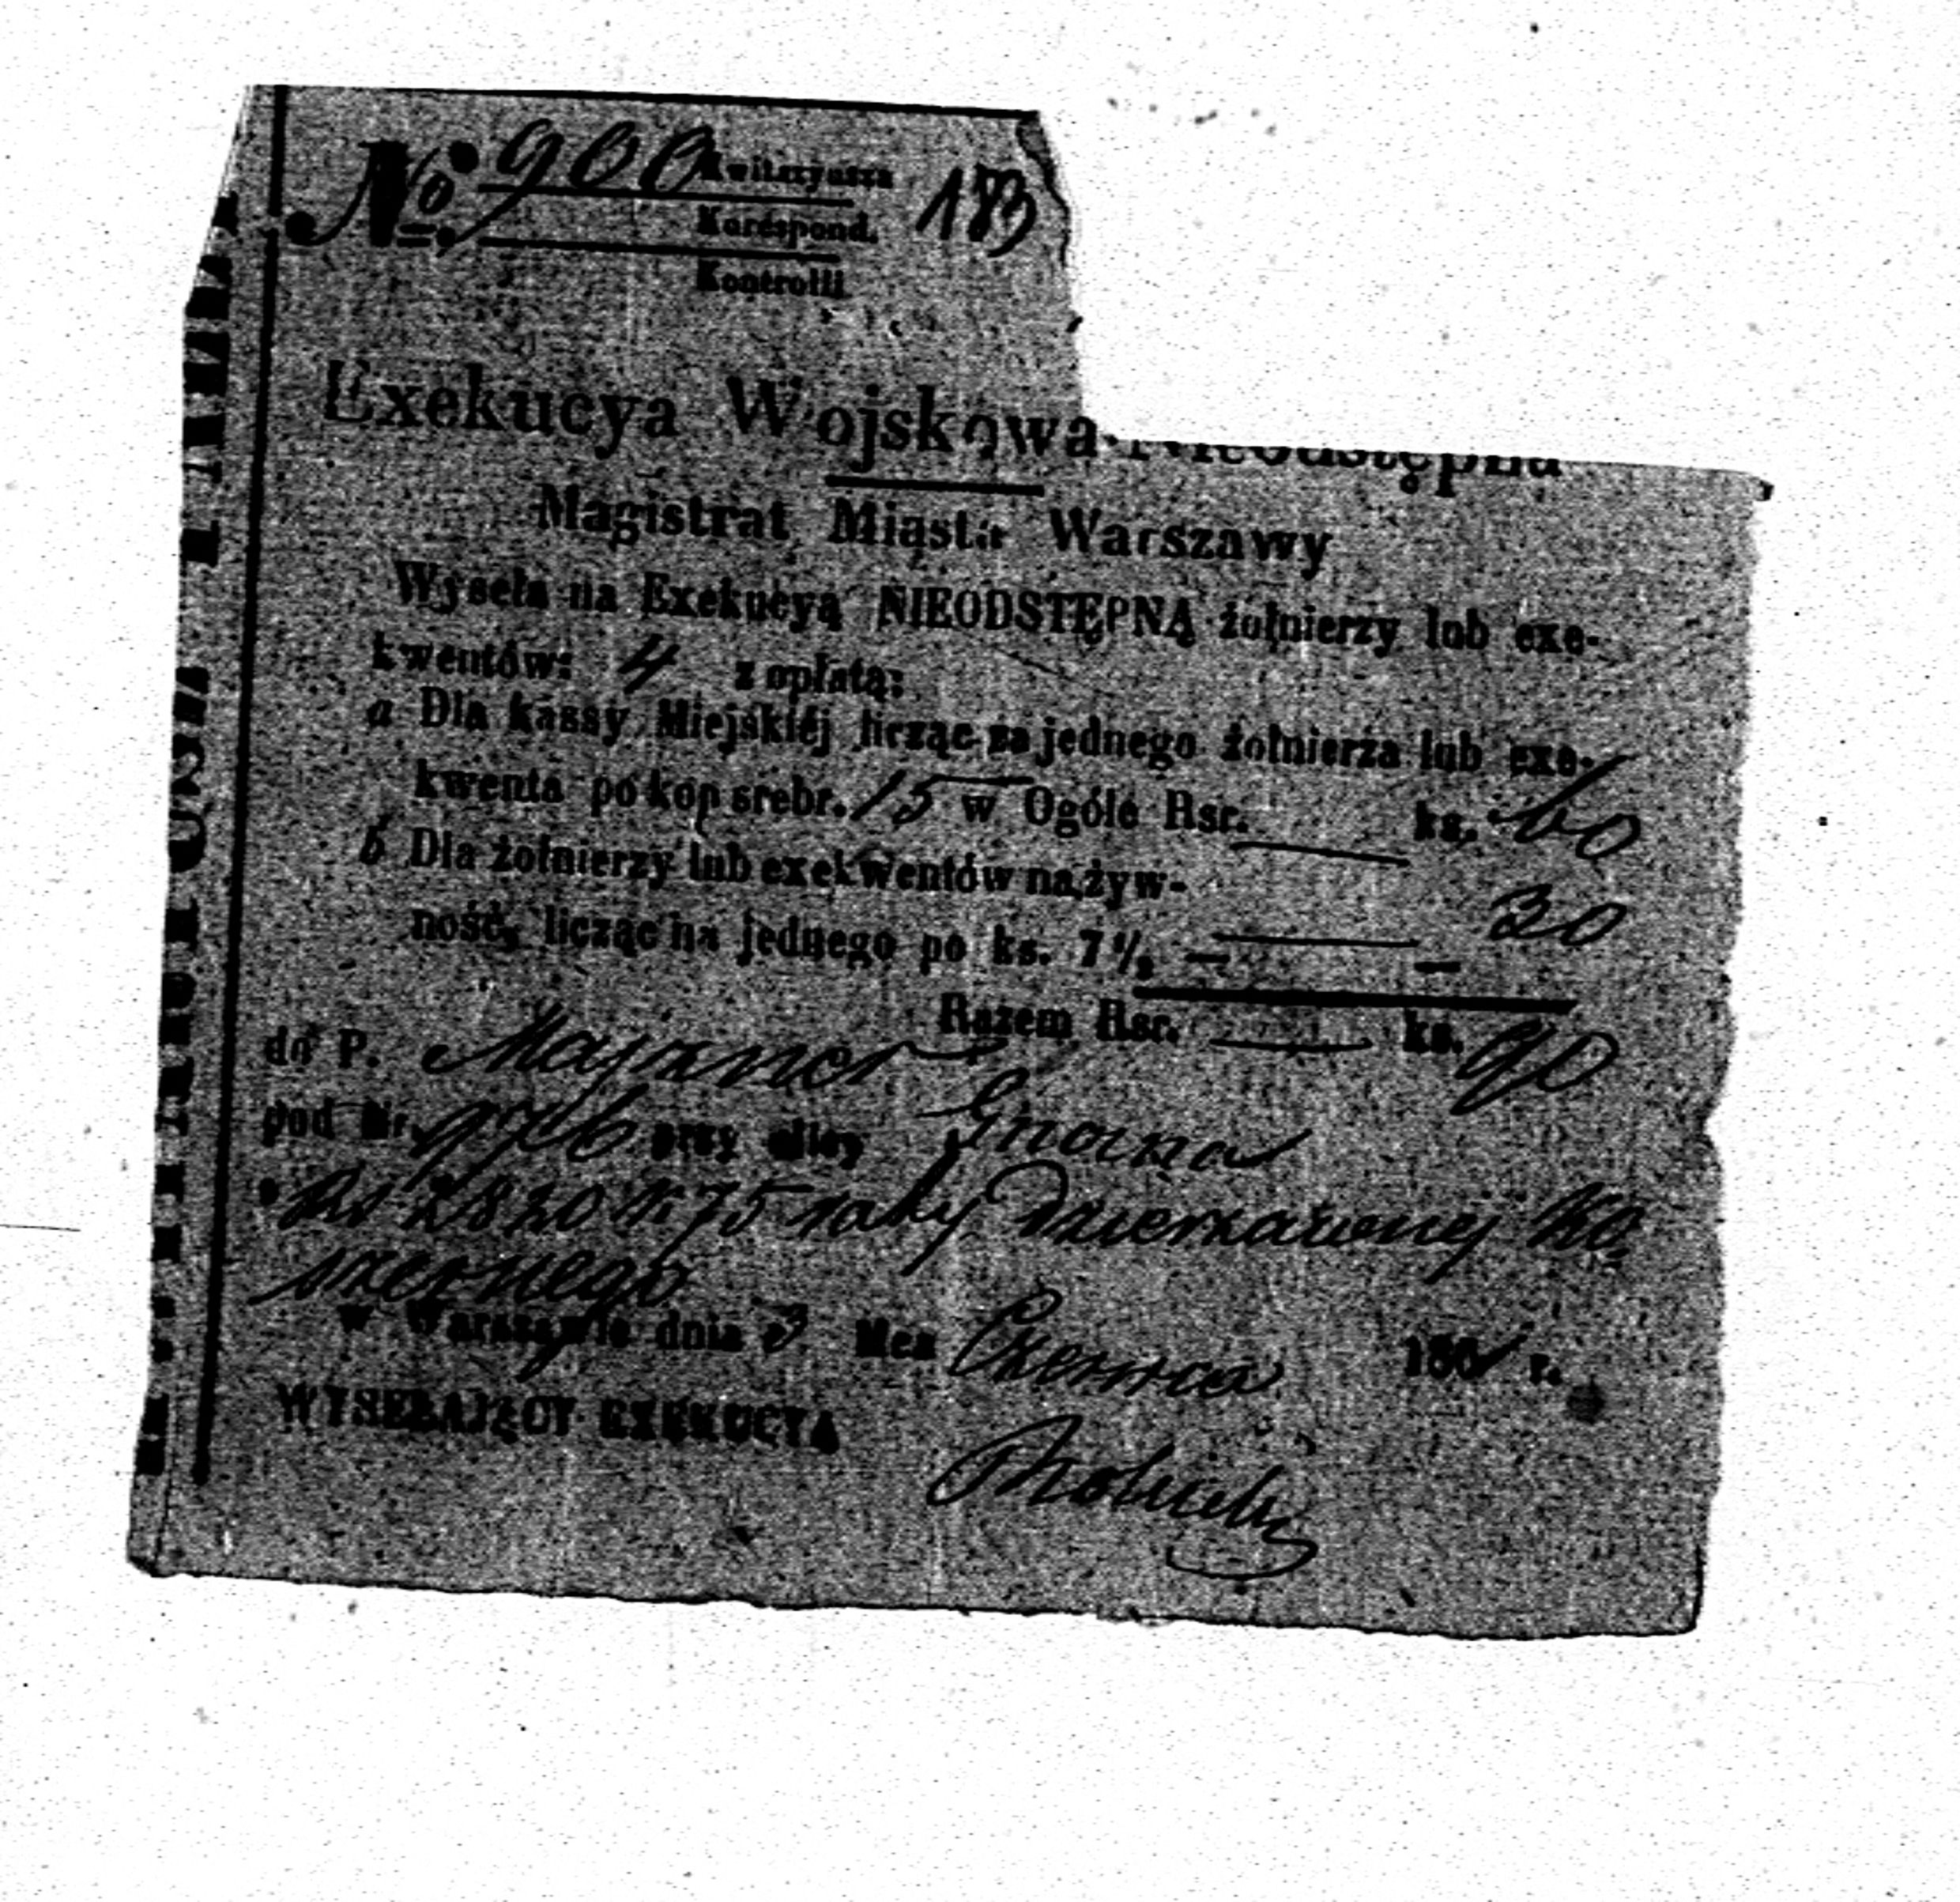 № 900 Kwitaryusza 183
Korespond.
Kontrolli
Exekucya Wojskowa Nieodstępna
Magistrat Miasta Warszawy
Wyseła na Exekucyą NIEODSTĘPNĄ żołnierzy lub exe-
kwentów: 4 z opłatą:
a Dla kassy Miejskiéj licząc za jednego żołnierza lub exe-
kwenta po kop srebr. 15 w Ogóle Rsr. ks. 60
b Dla żołnierzy lub exekwentów na żyw-
ność, licząc na jednego po ks. 7½ — — 30
Razem Rsr. ks. 90
do P. Majzner
pod Nr. 976 przy ulicy Gnoina
Rs 2820 k 75 raty Dzierżawnej Ko
szernego
w Warszawie dnia 3 Mca Czerwca 1861 r.
WYSEŁAJĄCY EXEKUCYĄ